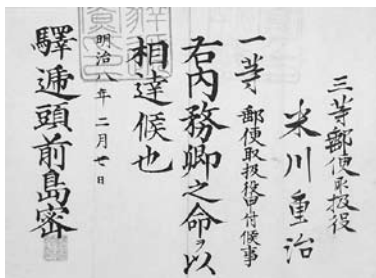 三等郵便取扱役
米川重治
一等郵便取扱役申付候事
右内務卿之命ヲ以
相達候也
明治八年二月廿日
驛遞頭前島密